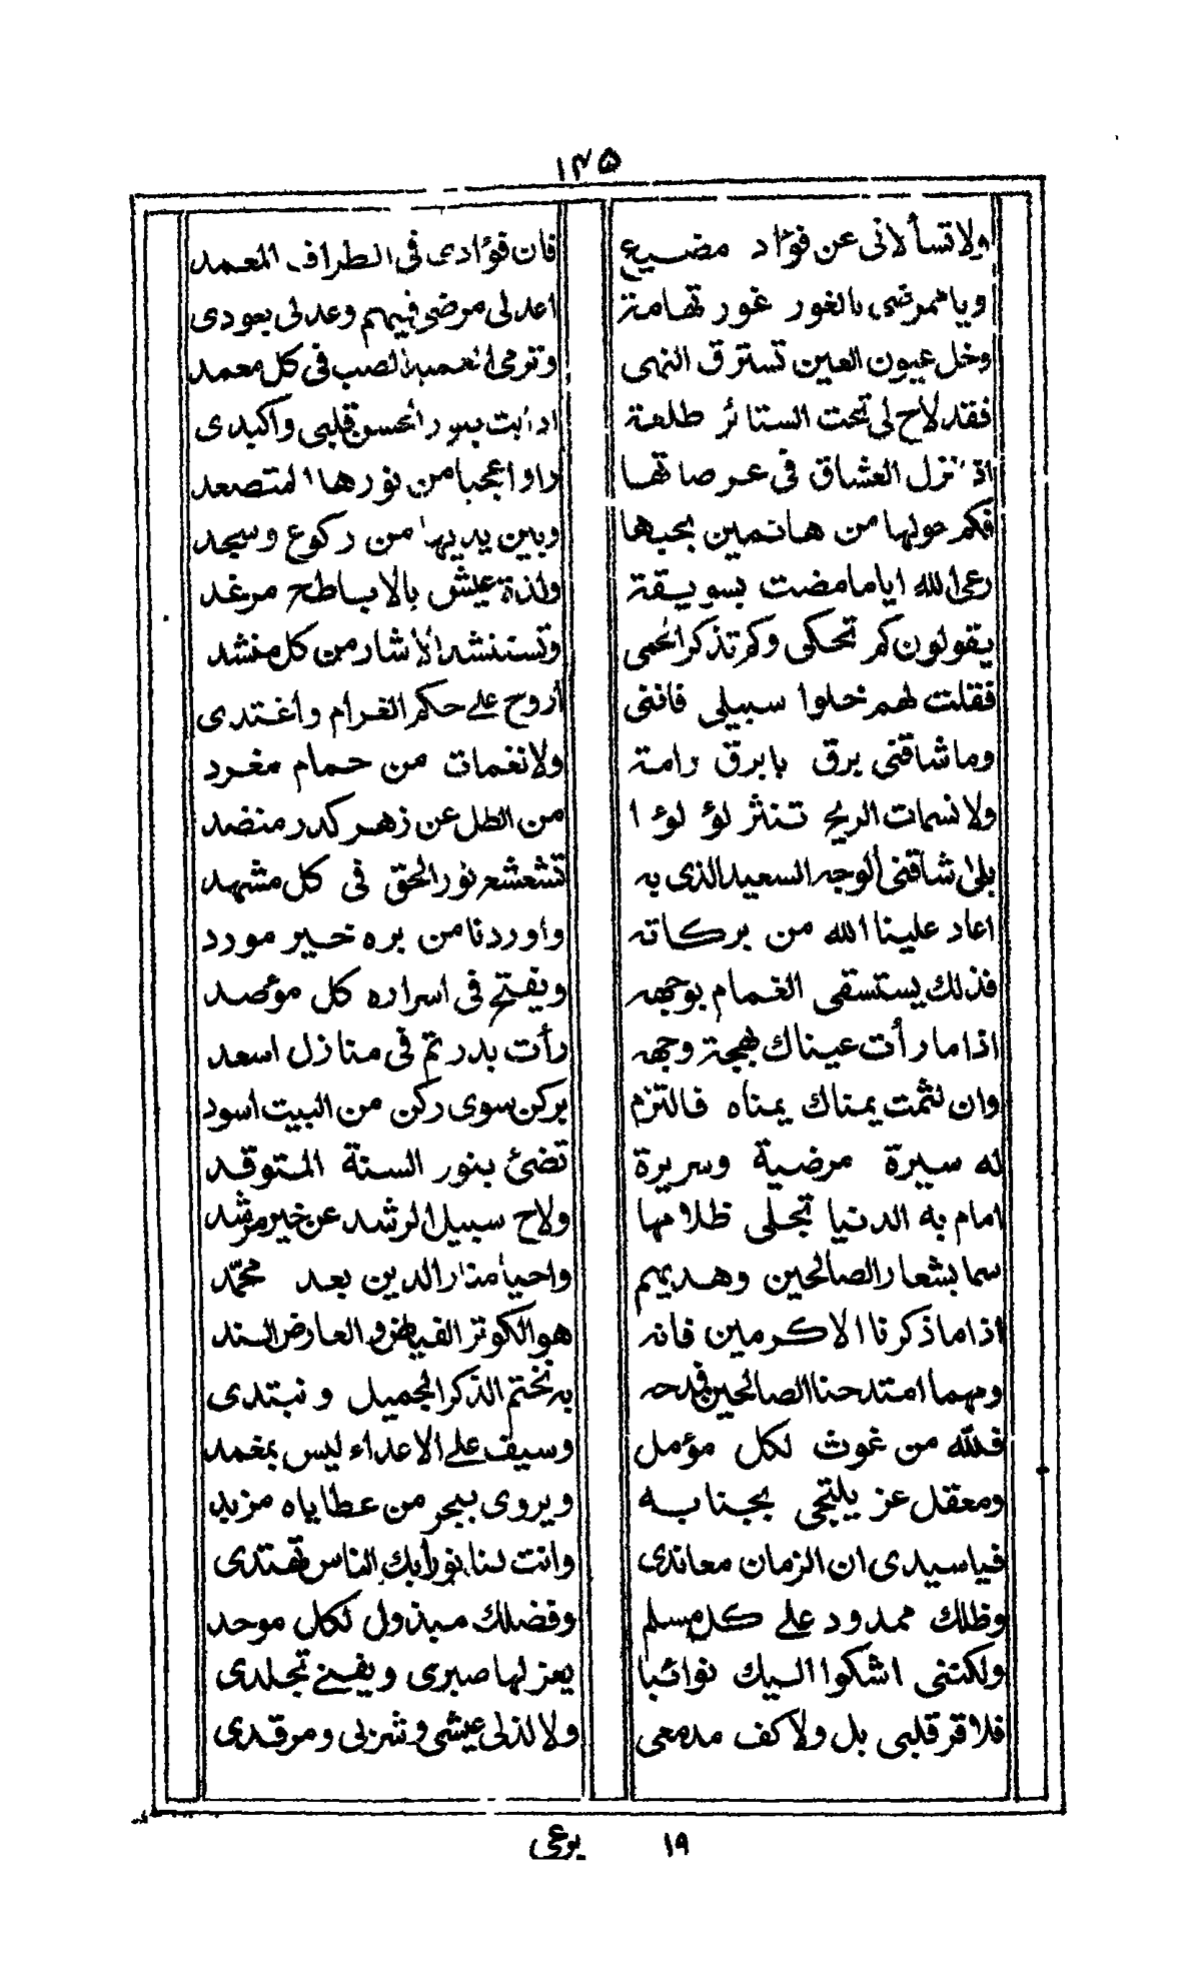 ١٣٥
ولا تسألانى عن فؤاد مضيع فان فؤادى فى الطراف المعمد
ويا ممرضى بالغور غور تهامة اعد لى مرضى فيهم وعد لى بعودى
وخل عيون العين تسترق النهى وترمى العميد الصب فى كل معمد
فقد لاح لى تحت الستائر طلعة اذابت بنور الحسن قلبى واكبدى
اذا نزل العشاق فى عرصاتها راوا عجبا من نورها المتصعد
فكم حولها من هائمين بحبها وبين يديها من ركوع وسجد
رعى الله اياما مضت بسويقة ولذة عيش بالاباطح مرغد
يقولون كم تحكى وكم تذكر الحمى وتستنشد الاشار من كل منشد
فقلت لهم خلوا سبيلى فاننى أروح على حكم الغرام واغتدى
وما شاقنى برق بابرق رامة ولا نغمات من حمام مغرد
ولا نسمات الريح تنثر لؤلؤا من الطل عن زهر كدر منضد
بلى شاقنى الوجه السعيد الذى به تشعشع نور الحق فى كل مشهد
اعاد علينا الله من بركاته وأوردنا من بره خير مورد
فذلك يستسقى الغمام بوجهه ويفتح فى اسراره كل مؤصد
اذا ما رأت عيناك بهجة وجهه رأت بدر تم فى منازل اسعد
وان لثمت يمناك يمناه فالتزم بركن سوى ركن من البيت اسود
له سيرة مرضية وسريرة تضئ بنور السنة المتوقد
امام به الدنيا تجلى ظلامها ولاح سبيل الرشد عن خير مرشد
سما بشعار الصالحين وهديهم واحيا منار الدين بعد محمّد
اذا ما ذكرنا الاكرمين فانه هو الكوثر الفياض والعارض السند
ومهما امتدحنا الصالحين فمدحه به نختم الذكر الجميل ونبتدى
فللّه من غوث لكل مؤمل وسيف على الاعداء ليس بمغمد
ومعقل عز يلتجى بجنابه ويروى ببحر من عطاياه مزبد
فيا سيدى ان الزمان معاندى وانت لنا نور بك الناس تقتدى
وظلك ممدود على كل مسلم وفضلك مبذول لكل موحد
ولكننى اشكوا اليك نوائبا يعز لها صبرى ويفنى تجلدى
فلا قر قلبى بل ولا كف مدمعى ولا لذ لى عيشى وشربى ومرقدى
١٩ يرعى